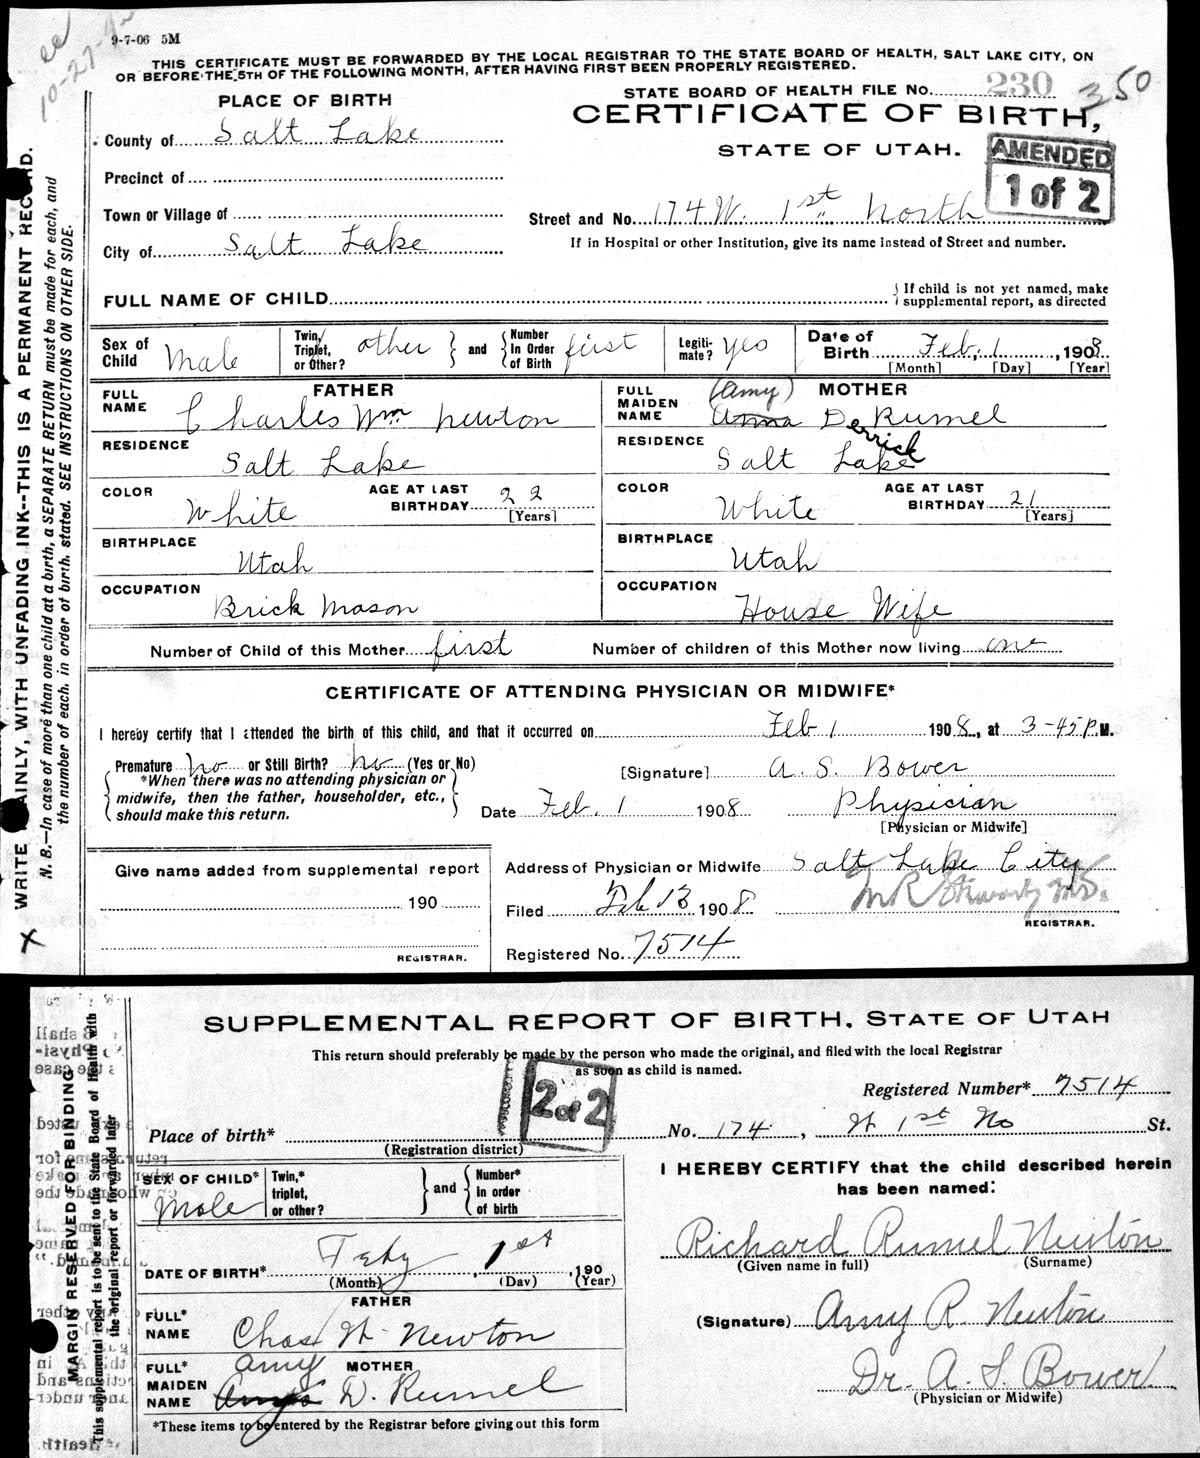 ee
10-27-4
9-7-06 5M
THIS CERTIFICATE MUST BE FORWARDED BY THE LOCAL REGISTRAR TO THE STATE BOARD OF HEALTH, SALT LAKE CITY, ON
OR BEFORE THE 5TH OF THE FOLLOWING MONTH, AFTER HAVING FIRST BEEN PROPERLY REGISTERED.
STATE BOARD OF HEALTH FILE No. 230 350
PLACE OF BIRTH
CERTIFICATE OF BIRTH,
STATE OF UTAH.
AMENDED
1 of 2
County of Salt Lake
Precinct of
Town or Village of
City of Salt Lake
Street and No. 174 W. 1st North
If in Hospital or other Institution, give its name instead of Street and number.
FULL NAME OF CHILD
If child is not yet named, make
supplemental report, as directed
Sex of Child Male
Twin, Triplet, or Other? other and Number In Order of Birth first
Legiti-mate? yes
Date of Birth Feb, 1, 1908
[Month] [Day] [Year]
FATHER
FULL NAME Charles Wm Newton
RESIDENCE
Salt Lake
COLOR White
AGE AT LAST BIRTHDAY 22
[Years]
BIRTHPLACE
Utah
OCCUPATION
Brick Mason
MOTHER
FULL MAIDEN NAME (Amy) Anna De Rumel
Derrick
RESIDENCE
Salt Lake
COLOR White
AGE AT LAST BIRTHDAY 21
[Years]
BIRTHPLACE
Utah
OCCUPATION
House Wife
Number of Child of this Mother first Number of children of this Mother now living one
CERTIFICATE OF ATTENDING PHYSICIAN OR MIDWIFE*
I hereby certify that I attended the birth of this child, and that it occurred on Feb 1 1908, at 3-45 P.M.
Premature no or Still Birth? no (Yes or No)
*When there was no attending physician or
midwife, then the father, householder, etc.,
should make this return.
[Signature] A. S. Bower
Date Feb. 1 1908 Physician
[Physician or Midwife]
Give name added from supplemental report
190
REGISTRAR.
Address of Physician or Midwife Salt Lake City
Filed Feb 13 1908
REGISTRAR.
Registered No. 7514
WRITE PLAINLY, WITH UNFADING INK--THIS IS A PERMANENT RECORD.
N. B.—In case of more than one child at a birth, a SEPARATE RETURN must be made for each, and
the number of each, in order of birth, stated. SEE INSTRUCTIONS ON OTHER SIDE.
X
SUPPLEMENTAL REPORT OF BIRTH, STATE OF UTAH
This return should preferably be made by the person who made the original, and filed with the local Registrar
as soon as child is named.
2 of 2
Registered Number* 7514
Place of birth* No. 174, W 1st No St.
(Registration district)
SEX OF CHILD* Male
Twin,* triplet, or other? and Number* in order of birth
DATE OF BIRTH* Feby 1st, 190
(Month) (Day) (Year)
FATHER
FULL* NAME Chas W. Newton
MOTHER
FULL* MAIDEN NAME Amy D. Rumel
*These items to be entered by the Registrar before giving out this form
I HEREBY CERTIFY that the child described herein
has been named:
Richard Rumel Newton
(Given name in full) (Surname)
(Signature) Amy R. Newton
Dr. A. S. Bower
(Physician or Midwife)
MARGIN RESERVED FOR BINDING
This supplemental report is to be sent to the State Board of Health with
the original report or forwarded later